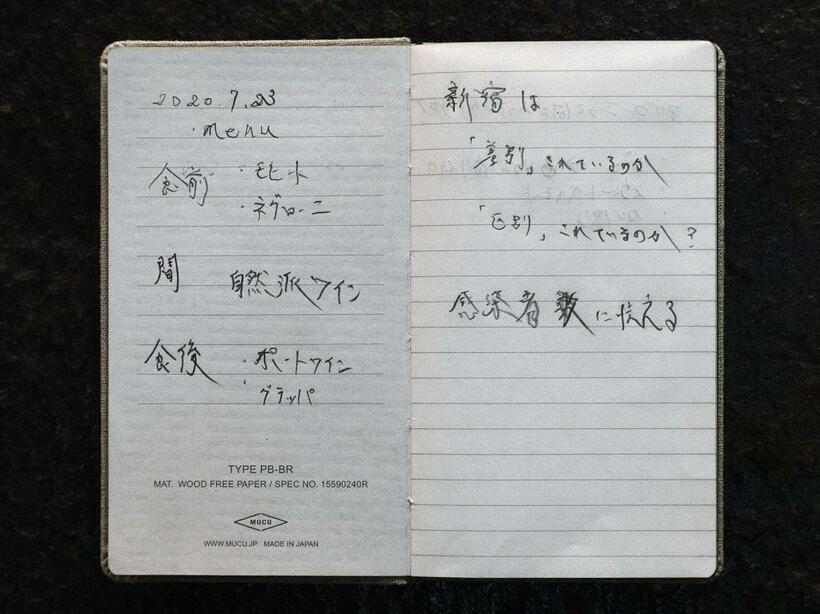 2020.7.23
・menu
食前 ・モヒート
・ネグローニ
間 自然派ワイン
食後 ・ポートワイン
・グラッパ
TYPE PB-BR
MAT. WOOD FREE PAPER / SPEC NO. 15590240R
MUCU
WWW.MUCU.JP MADE IN JAPAN
新宿は
「差別」されているのか
「区別」されているのか?
感染者数に怯える